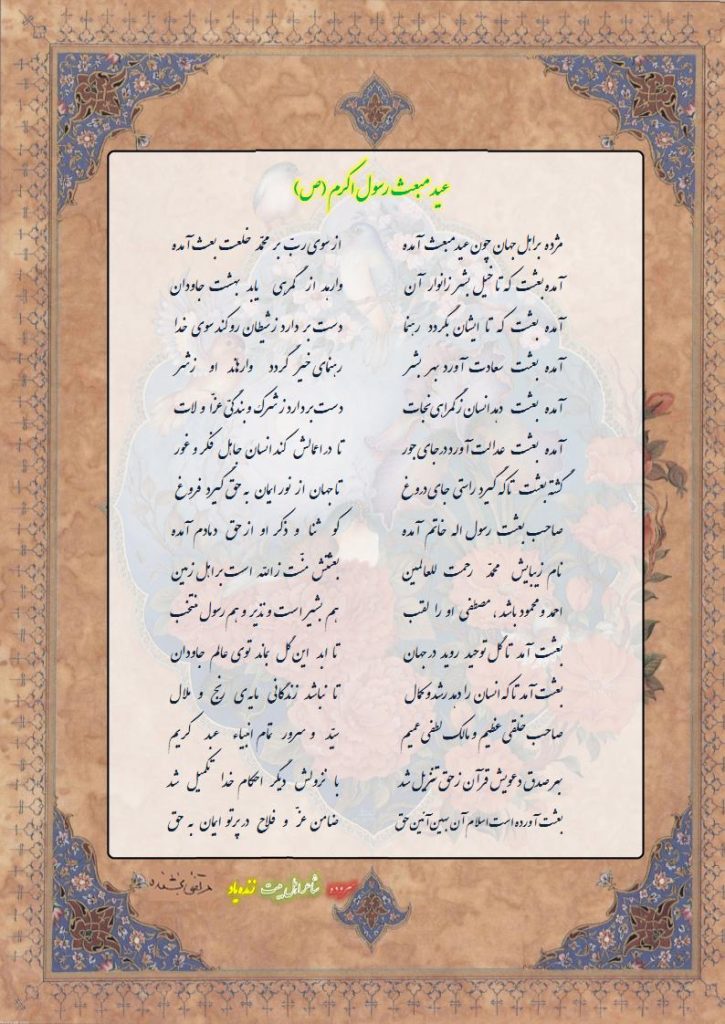 عید مبعث رسول اکرم (ص)
مژده بر اهل جهان چون عید مبعث آمده از سوی ربّ بر محمّد خلعت بعث آمده
آمده بعثت که تا خیل بشر ز انوار آن وارهد از گمرهی یابد بهشت جاودان
آمده بعثت که تا ایشان بگردد رهنما دست بر دارد ز شیطان رو کند سوی خدا
آمده بعثت سعادت آورد بهر بشر رهنمای خیر گردد وارهاند او ز شر
آمده بعثت دهد انسان ز گمراهی نجات دست بردارد ز شرک و بندگیّ عزّا و لات
آمده بعثت عدالت آورد در جای جور تا در اعمالش کند انسان جاهل فکر و غور
گشته بعثت تا که گیرد راستی جای دروغ تا جهان از نور ایمان به حق گیرد فروغ
صاحب بعثت رسول اله خاتم آمده کو ثنا و ذکر او از حق دمادم آمده
نام زیبایش محمّد رحمت للعالمین بعثتش منّت ز الله است بر اهل زمین
احمد و محمود باشد ، مصطفی او را لقب هم بشیر است و نذیر و هم رسول منتخب
بعثت آمد تا گل توحید روید در جهان تا ابد این گل بماند توی عالم جاودان
بعثت آمد تا که انسان را دهد رشد و کمال تا نباشد زندگانی مایه‌ی رنج و ملال
صاحب خلقی عظیم و مالک لطفی عمیم سیّد و سرور تمام انبیاء عبد کریم
بهر صدق دعویش قرآن ز حق تنزیل شد با نزولش دیگر احکام خدا تکمیل شد
بعثت آورده است اسلام آن بهین آئین حق ضامن عزّ و فلاح در پرتو ایمان به حق
سروده شاعر اهل بیت زنده یاد